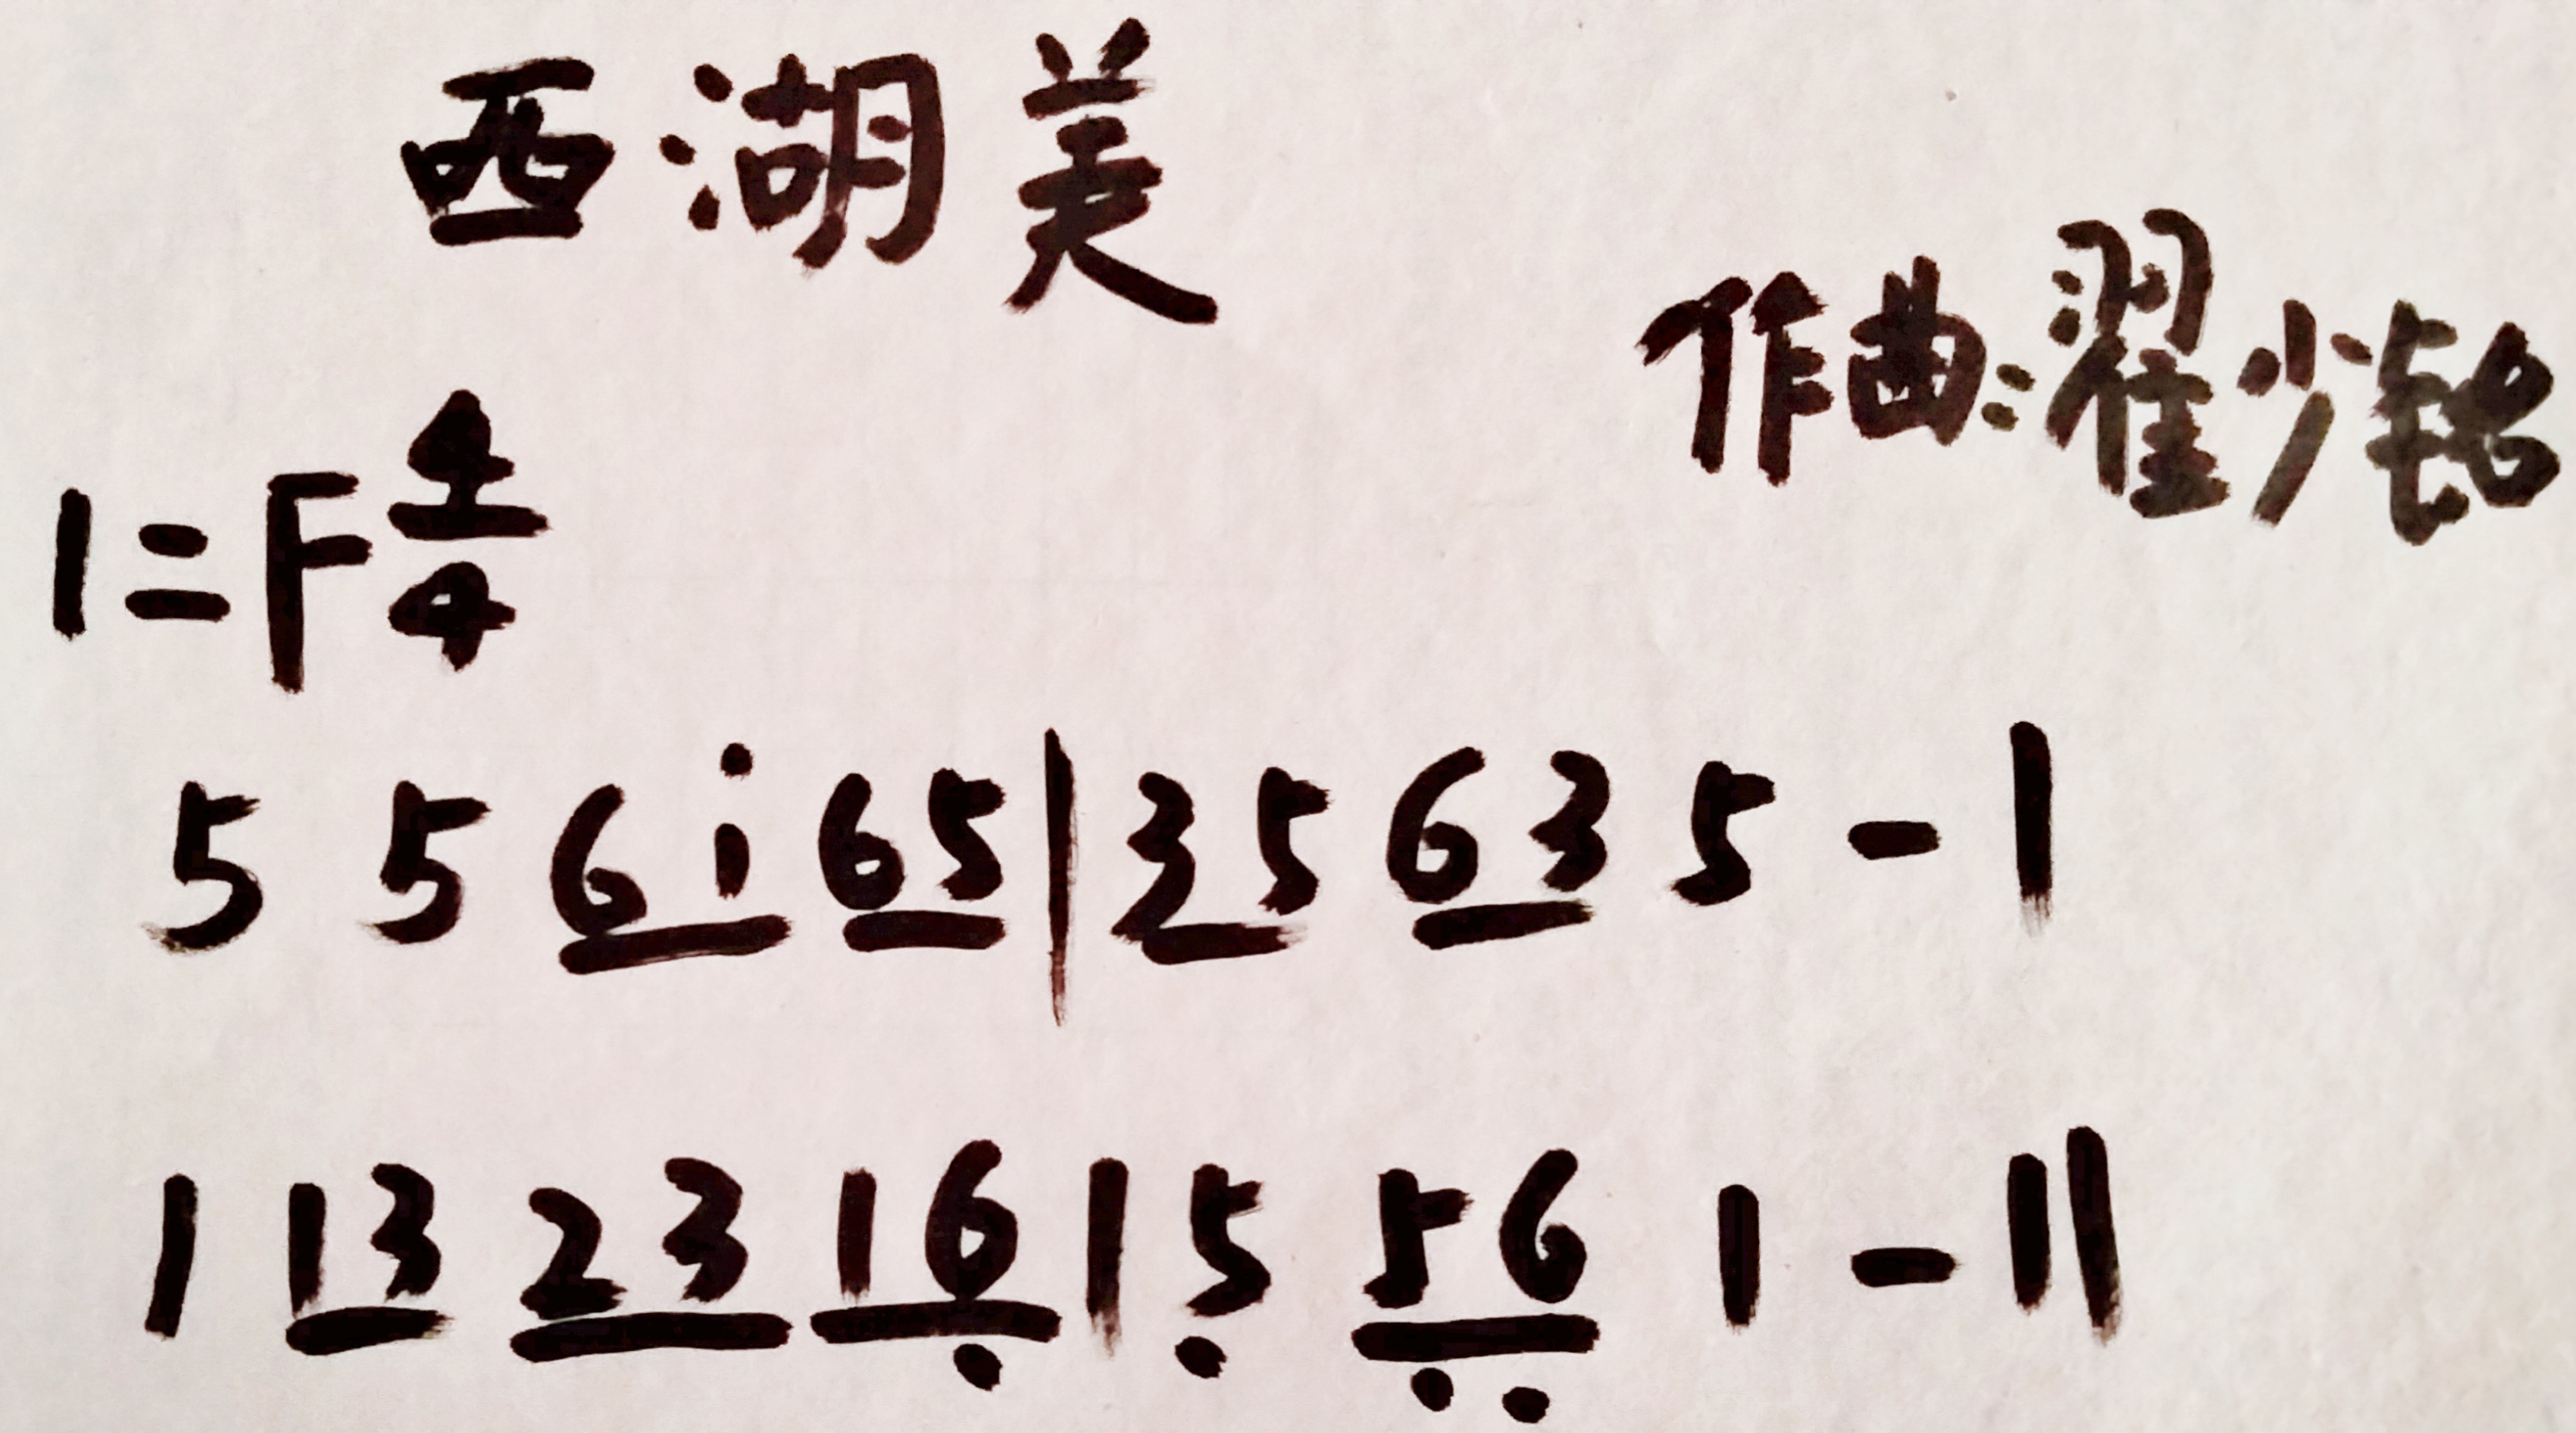 西湖美
作曲:翟少铭
1=F 4/4
5 5 6 i 6 5 | 3 5 6 3 5 - |
1 1 3 2 3 1 6̣ | 5̣ 5̣ 6̣ 1 - ||